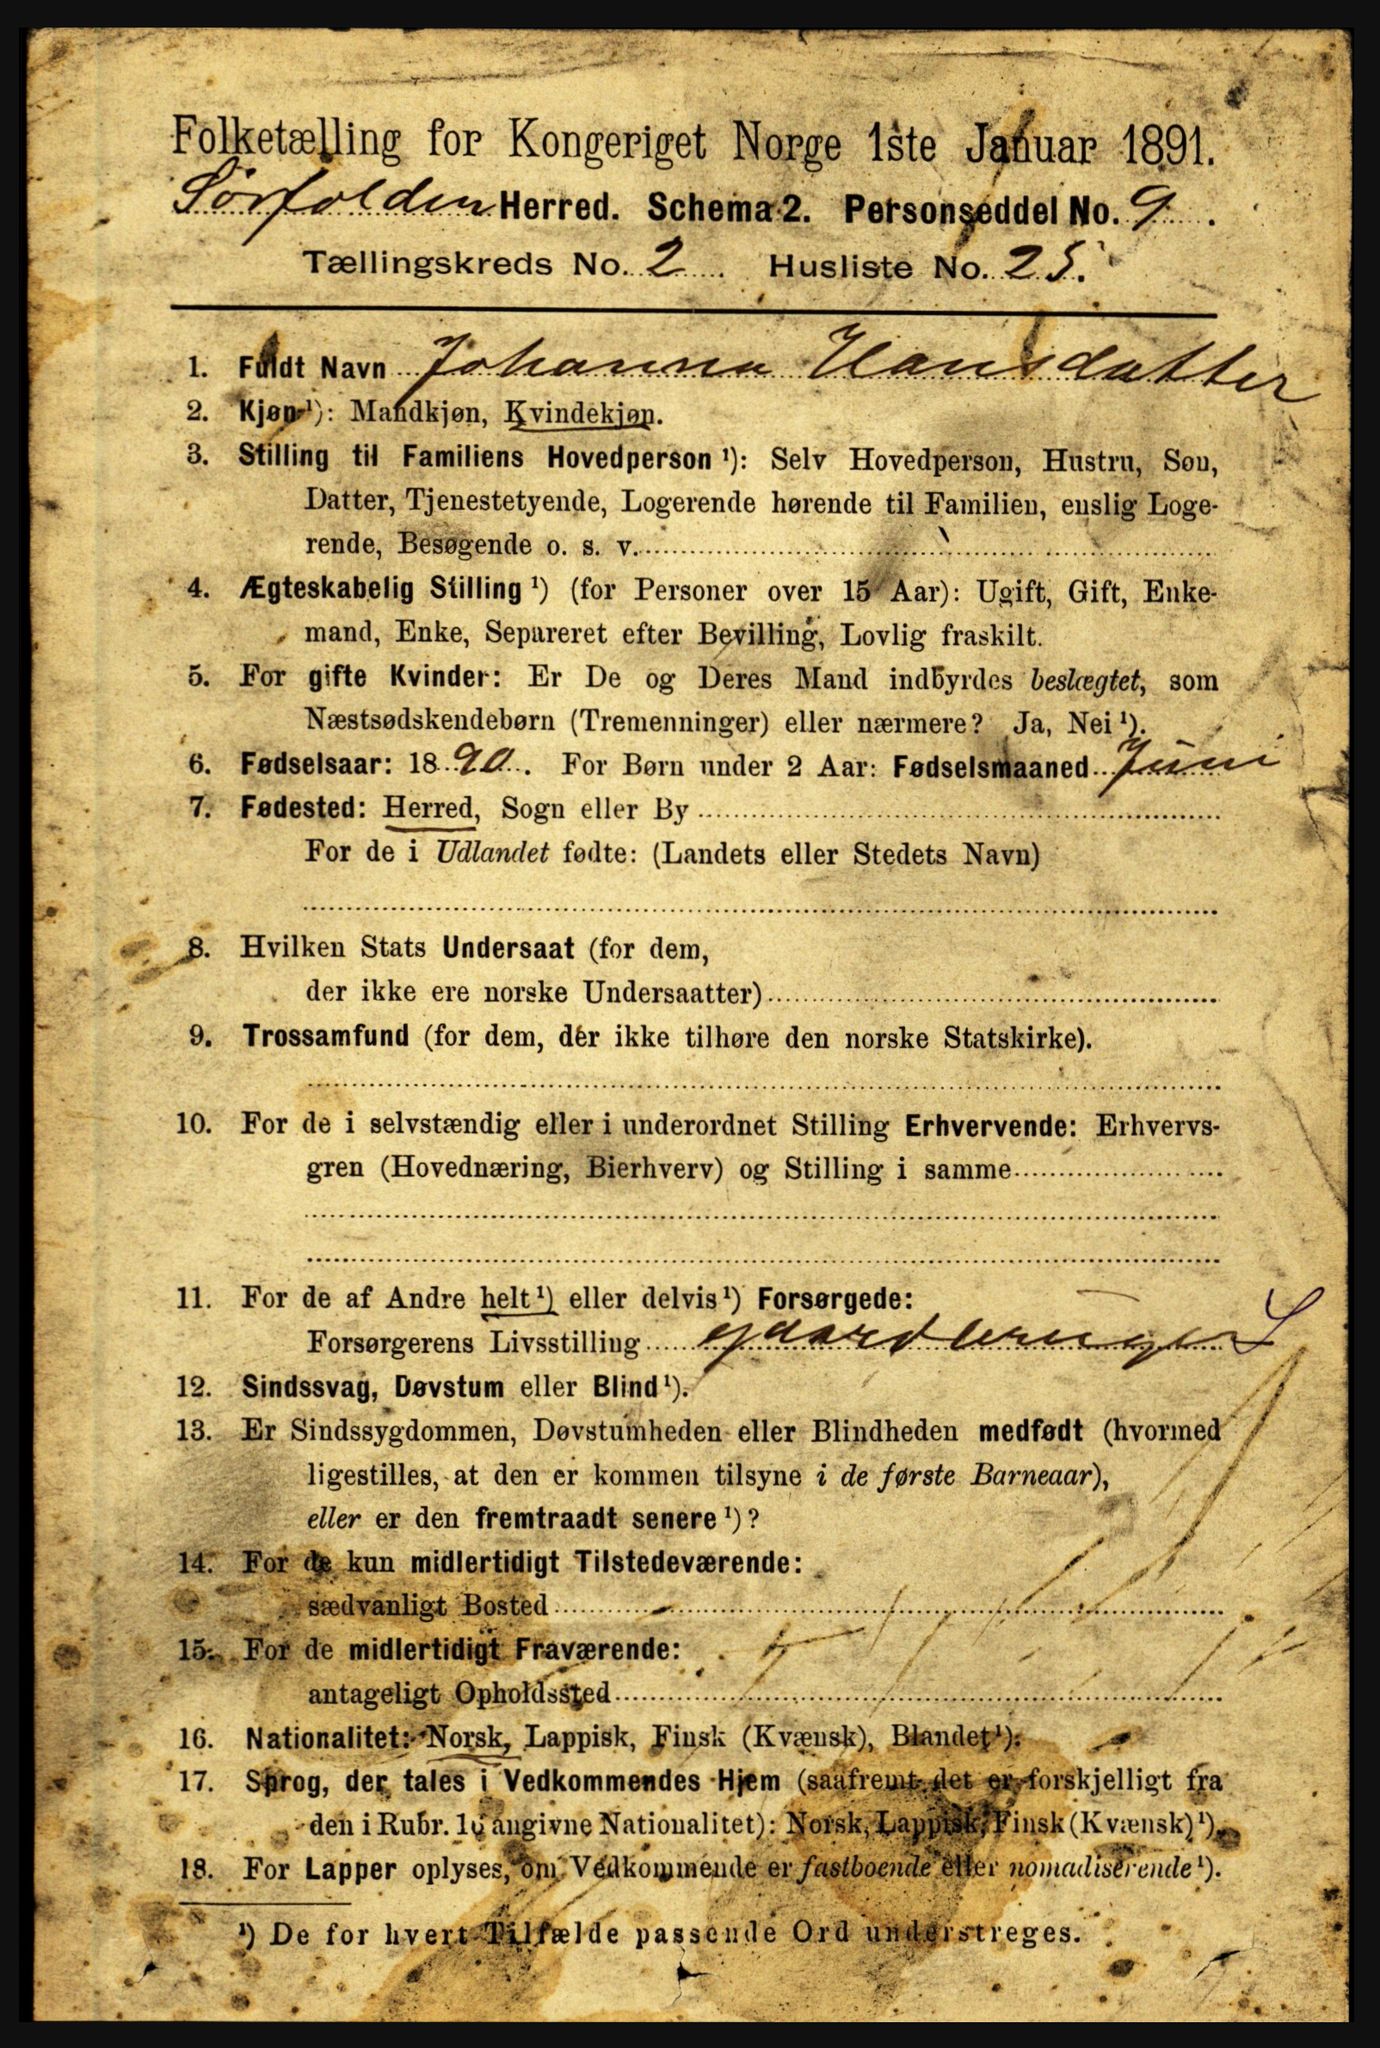 Folketælling for Kongeriget Norge 1ste Januar 1891.
Sørfolden Herred. Schema 2. Personseddel No. 9.
Tællingskreds No. 2 Husliste No. 25.
1. Fuldt Navn Johanna Hansdatter
2. Kjøn ¹): Mandkjøn, Kvindekjøn.
3. Stilling til Familiens Hovedperson ¹): Selv Hovedperson, Hustru, Søn,
Datter, Tjenestetyende, Logerende hørende til Familien, enslig Loge-
rende, Besøgende o. s. v.
4. Ægteskabelig Stilling ¹) (for Personer over 15 Aar): Ugift, Gift, Enke-
mand, Enke, Separeret efter Bevilling, Lovlig fraskilt.
5. For gifte Kvinder: Er De og Deres Mand indbyrdes beslægtet, som
Næstsødskendebørn (Tremenninger) eller nærmere? Ja, Nei ¹).
6. Fødselsaar: 1890. For Børn under 2 Aar: Fødselsmaaned Juni
7. Fødested: Herred, Sogn eller By
For de i Udlandet fødte: (Landets eller Stedets Navn)
8. Hvilken Stats Undersaat (for dem,
der ikke ere norske Undersaatter)
9. Trossamfund (for dem, der ikke tilhøre den norske Statskirke).
10. For de i selvstændig eller i underordnet Stilling Erhvervende: Erhvervs-
gren (Hovednæring, Bierhverv) og Stilling i samme
11. For de af Andre helt ¹) eller delvis ¹) Forsørgede:
Forsørgerens Livsstilling gaardbruger S
12. Sindssvag, Døvstum eller Blind ¹).
13. Er Sindssygdommen, Døvstumheden eller Blindheden medfødt (hvormed
ligestilles, at den er kommen tilsyne i de første Barneaar),
eller er den fremtraadt senere ¹)?
14. For de kun midlertidigt Tilstedeværende:
sædvanligt Bosted
15. For de midlertidigt Fraværende:
antageligt Opholdssted
16. Nationalitet: Norsk, Lappisk, Finsk (Kvænsk), Blandet ¹).
17. Sprog, der tales i Vedkommendes Hjem (saafremt det er forskjelligt fra
den i Rubr. 16 angivne Nationalitet): Norsk, Lappisk, Finsk (Kvænsk) ¹).
18. For Lapper oplyses, om Vedkommende er fastboende eller nomadiserende ¹).
¹) De for hvert Tilfælde passende Ord understreges.